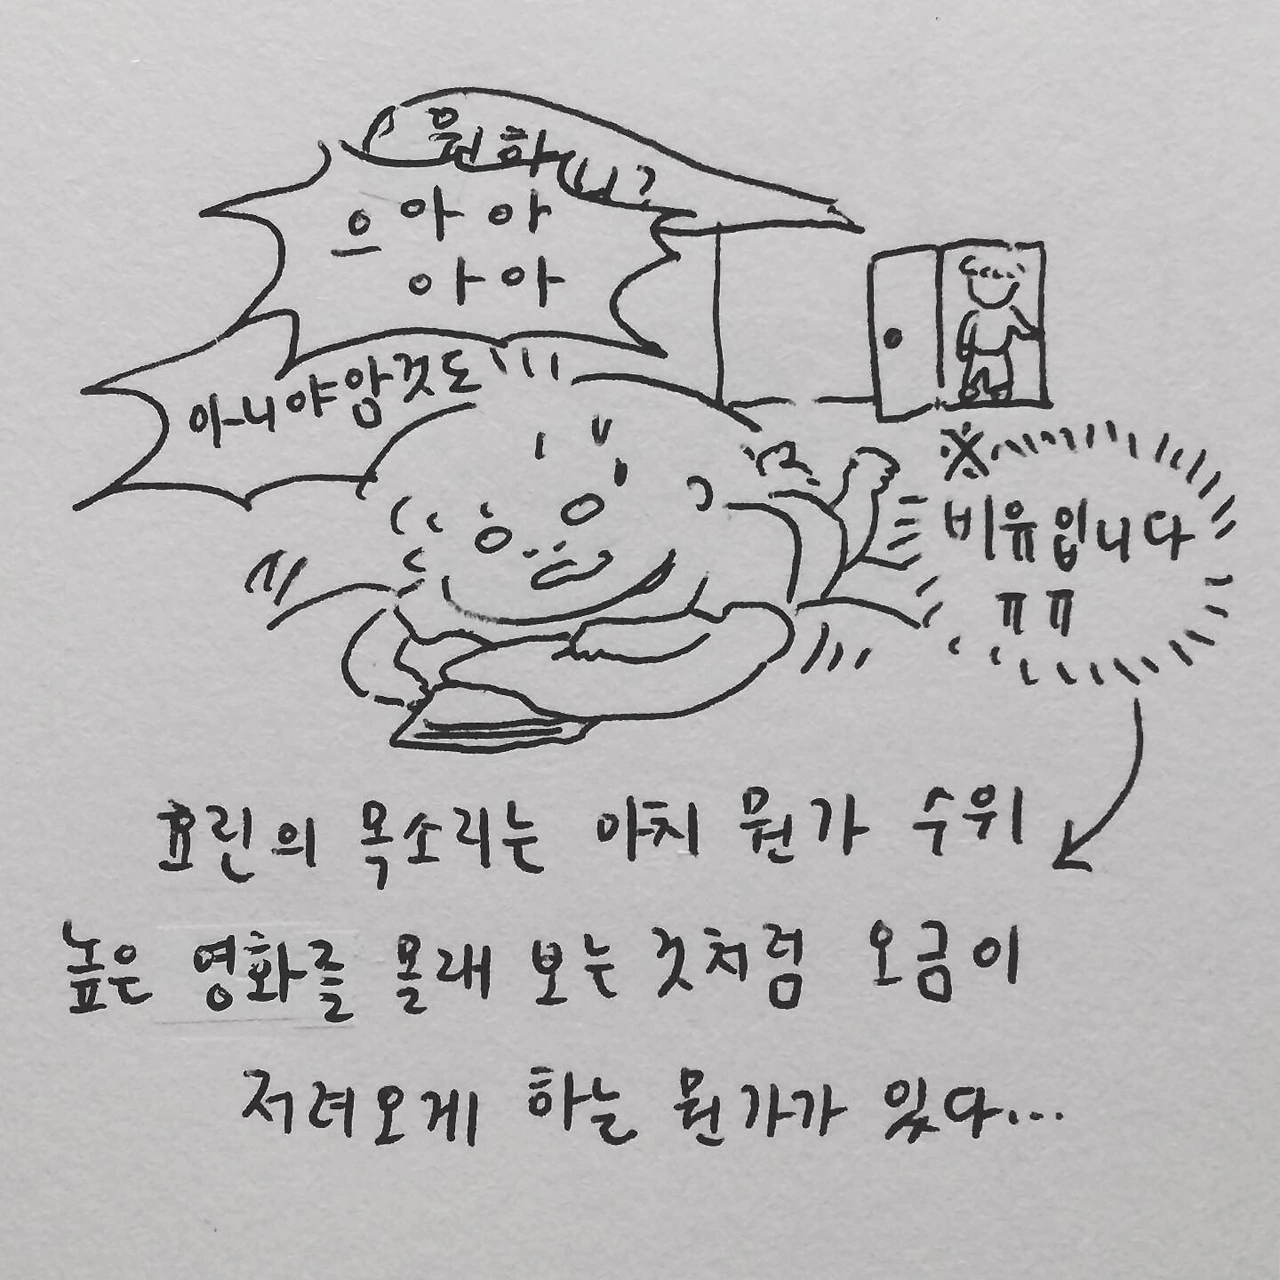 뭔하니?
으아아
아아
아니야암것도
※
비유입니다
ㅠㅠ
효린의 목소리는 마치 뭔가 수위
높은 영화를 몰래 보는 것처럼 오금이
저려오게 하는 뭔가가 있다...